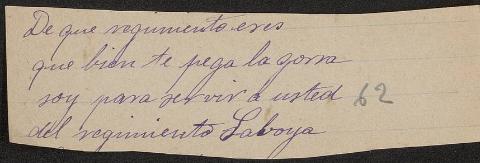 De que regimiento eres
que bien te pega la gorra
soy para servir a usted 62
del regimiento Saboya